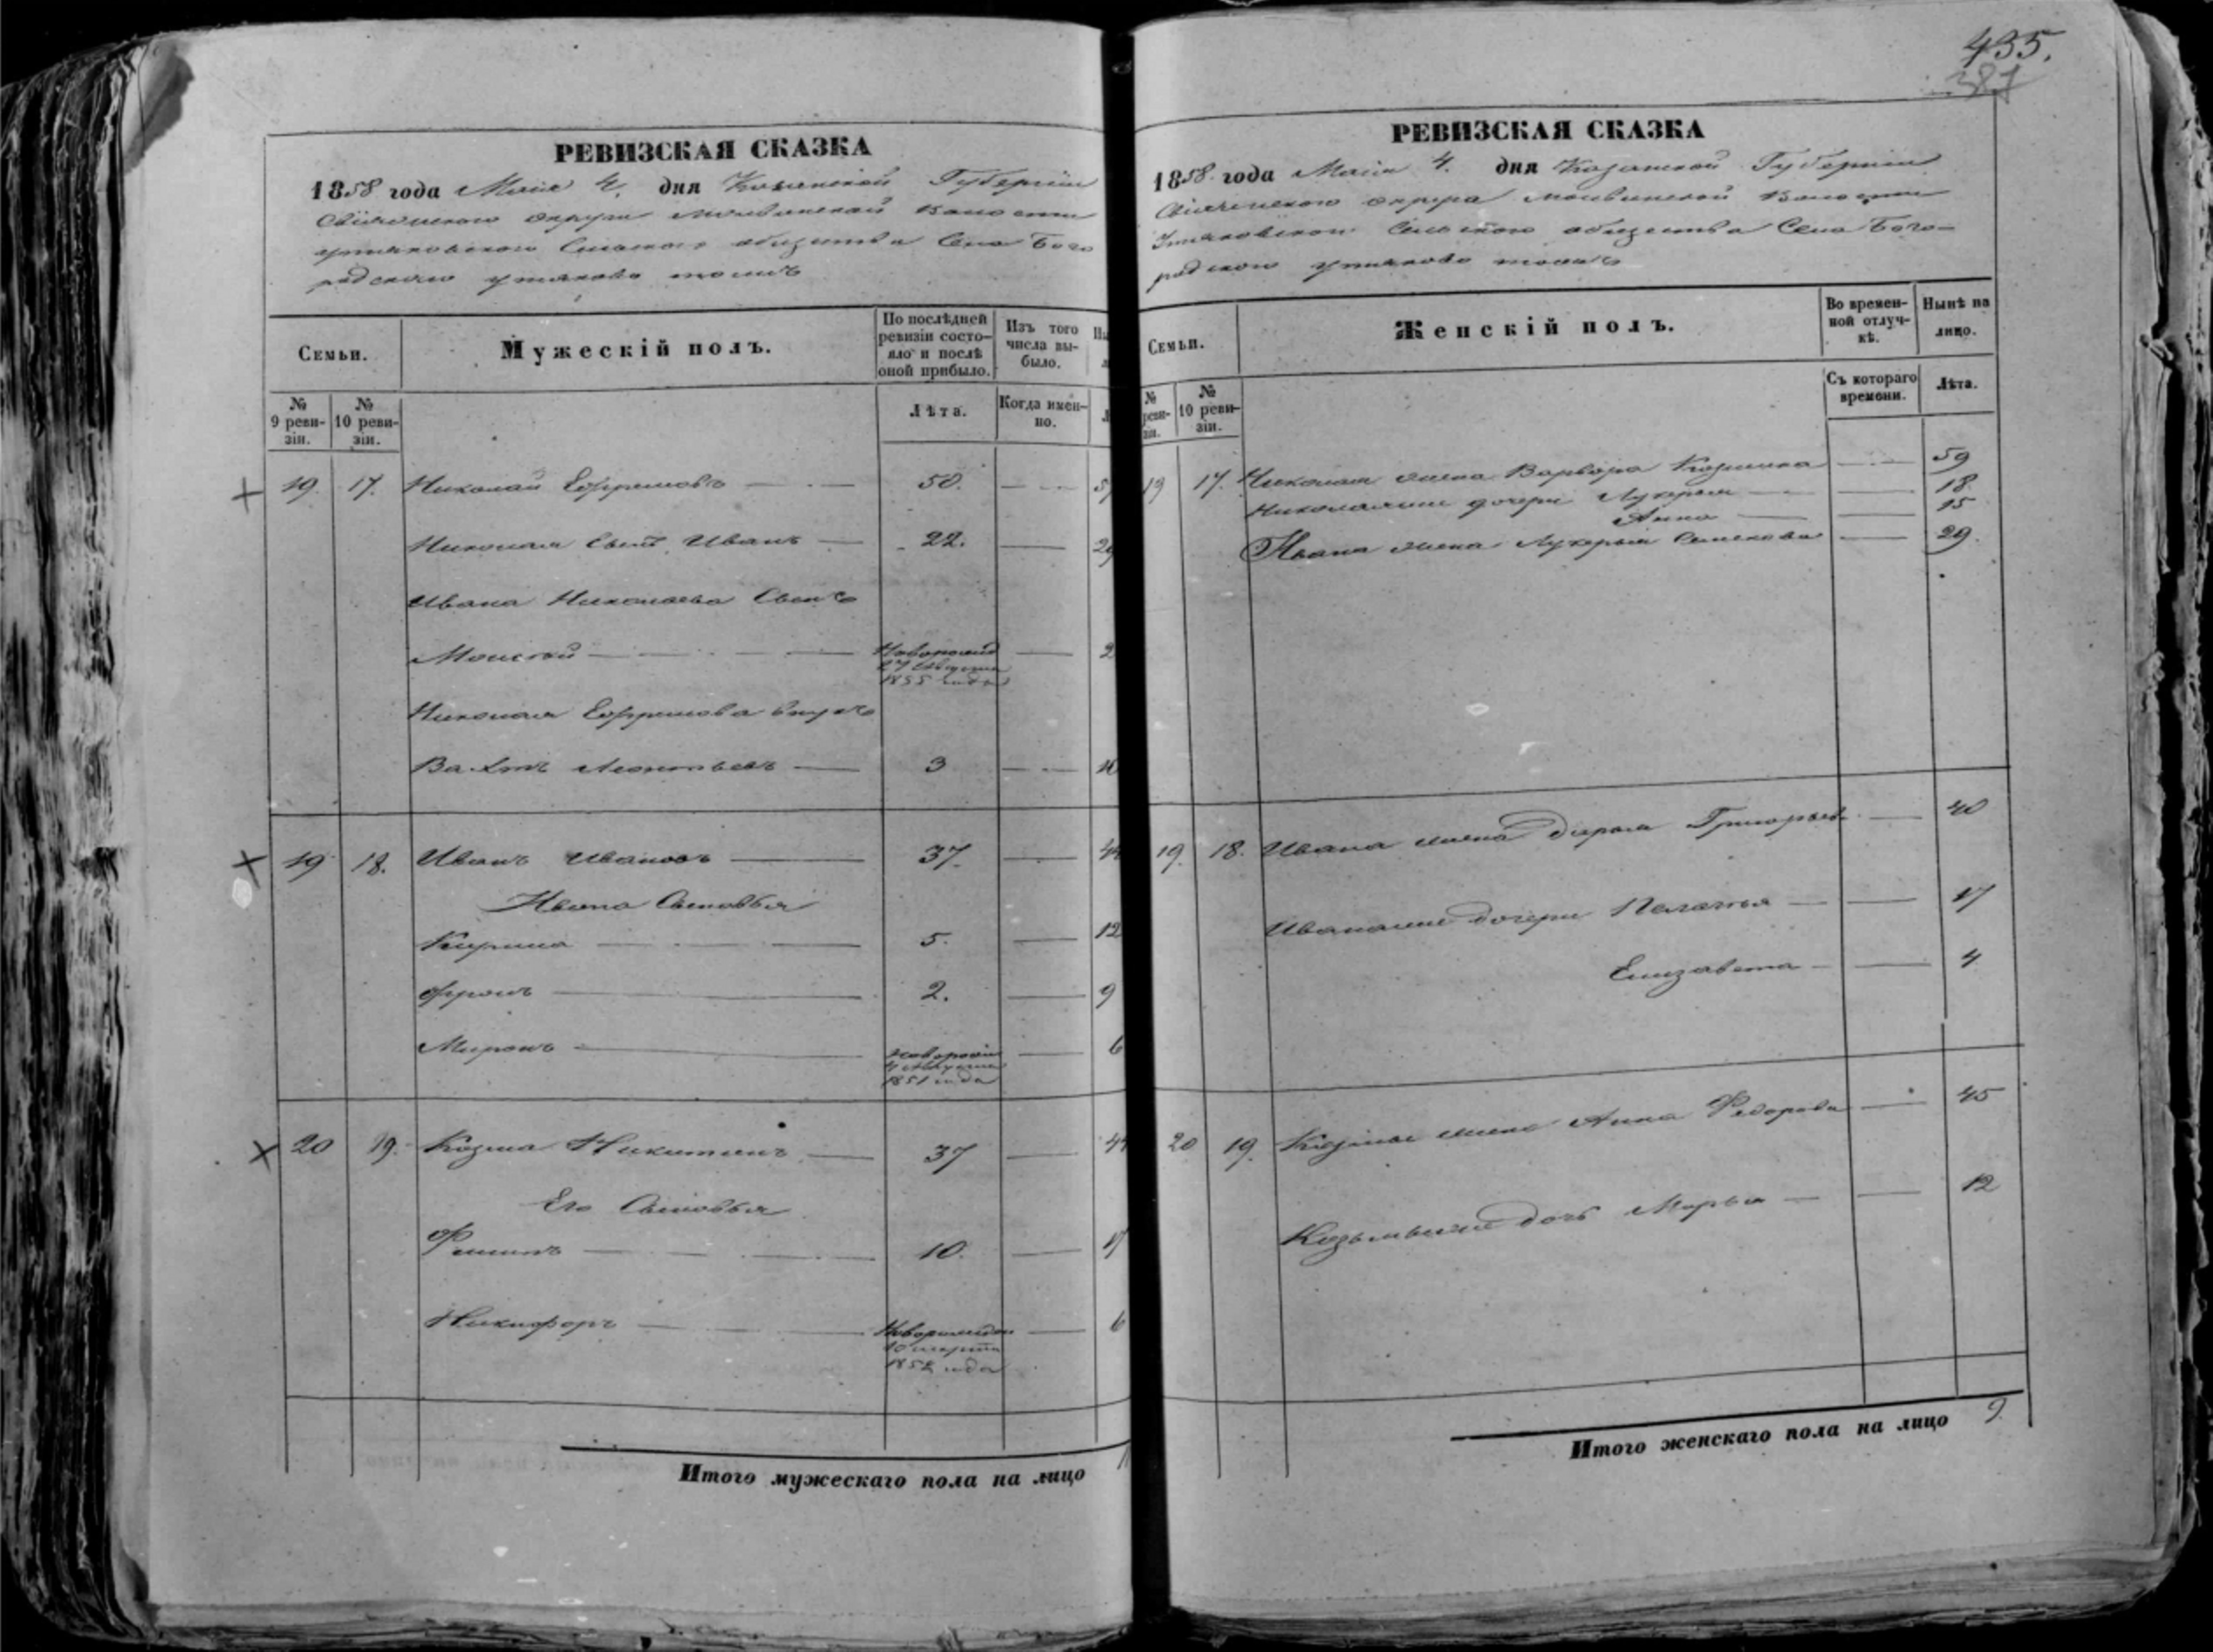 435.
387
РЕВИЗСКАЯ СКАЗКА
1858 года Маія 4. дня Казанской Губерніи
Свіяжскаго округа Волости
Сельскаго общества Села Бого
родскаго утяково тожъ
Семьи.
Мужескій полъ.
По послѣдней ревизіи состо-
яло и послѣ
оной прибыло.
Изъ того
числа вы-
было.
№
9 реви-
зіи.
№
10 реви-
зіи.
Лѣта.
Когда имен-
но.
19. 17. Николай Ефремовъ 50.
Николая Сынъ Иванъ 22.
Ивана Николаева Сынъ
Моисей Новорожд 2
27 Августа
1855 года
Николая Ефремова внукъ
Леонтьевъ 3
19 18. Иванъ Ивановъ 37. 44
Ивана Сыновья
Кирила 5. 12
Фролъ 2. 9
Миронъ Новорожд 6
Августа
1851 года
20 19. Козма Никитинъ 37 44
Его Сыновья
Филипъ 10. 17
Никифоръ Новорожден 6
10 марта
1852 года
Итого мужескаго пола на лицо
РЕВИЗСКАЯ СКАЗКА
1858 года Маія 4. дня Казанской Губерніи
Свіяжскаго округа Волости
Сельскаго общества Села Бого-
родскаго утяково тожъ
Семьи.
Женскій полъ.
Во времен-
ной отлуч-
кѣ.
Нынѣ на
лицо.
№
реви-
зіи.
№
10 реви-
зіи.
Съ котораго
времени.
Лѣта.
19 17. Николая жена Варвара Козмина 59
Николаевы дочери Лукерья 18.
Анна 15
Ивана жена Лукерья Семенова 29.
19. 18. Ивана жена Дарья Григорьева 40
Ивановы дочери Пелагея 17
Елизавета 4
20 19. Козмы жена Анна Федорова 45
дочь Марья 12
Итого женскаго пола на лицо 9.